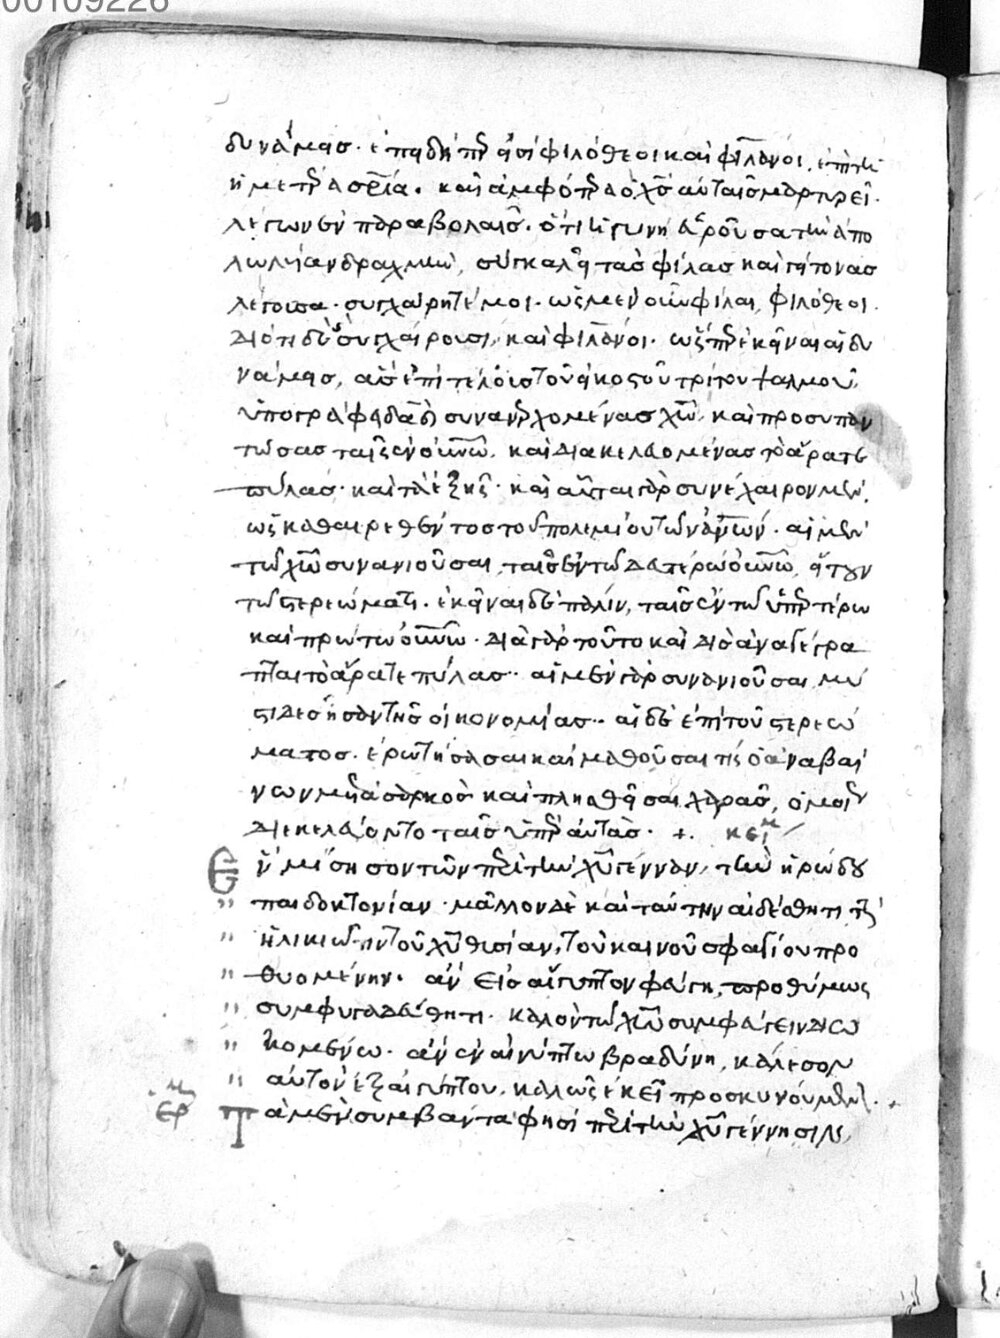 00109226
δυνάμεις· ἐπειδήπερ εἰσὶ φιλόθεοι καὶ φιλάνοι, ἐπὶ τῆ
ἡμετέρα σρία. καὶ ἀμφότερα ὁ χς αὐταῖς μαρτυρεῖ.
λέγων ἐν παραβολαῖς· ὅτι ἡ γυνὴ εὑροῦσα τὴν ἀπο
λωλυῖαν δραχμὴν, συγκαλεῖ τὰς φίλας καὶ γείτονας
λέγουσα· συγχάρητέ μοι· ὡς μὲν οὖν φίλαι, φιλόθεοι.
διότι δὲ συγχαίρουσι, καὶ φιλάνοι. ὥσπερ ἐκεῖναι αἱ δυ
νάμεις, ἃς ἐπὶ τέλους τοῦ εἰκοστοῦ τρίτου ψαλμοῦ,
ὑπογράφει δαδ συνανερχομένας χω, καὶ προσυπαν
τώσας ταῖς ἐν οὐνω, καὶ διακελευομένας τὸ ἄρατε
πύλας· καὶ τὰ ἑξῆς· καὶ αὗται γὰρ συνέχαιρον μὲν,
ὡς καθαιρεθέντος τοῦ πολεμίου τῶν ἀνων. αἱ μὲν
τῶ χω συνανιοῦσαι, ταῖς ἐν τῶ δευτέρω οὐνω, ἤγουν
τῶ στερεώματι. ἐκεῖναι δὲ πάλιν, ταῖς ἐν τῶ ὑπερτέρω
καὶ πρώτω οὐνω· διὰ γὰρ τοῦτο καὶ δὶς ἀναγέγρα
πται τὸ ἄρατε πύλας·· αἱ μὲν γὰρ συνανιοῦσαι, μύ
στιδες ἦσαν τῆς οἰκονομίας·· αἱ δὲ ἐπὶ τοῦ στερεώ
ματος. ἐρωτήσασαι καὶ μαθοῦσαι τίς ὁ ἀναβαί
νων μετὰ σαρκὸς καὶ πλησθεῖσαι χαρᾶς, ὁμοίως
διεκελεύοντο ταῖς ὑπὲρ αὐτάς· +. κεί
Εν μίσησον τῶν περὶ τὴν χυ γένναν, τὴν ἡρώδου
παιδοκτονίαν· μᾶλλον δὲ καὶ ταύτην αἰδέσθητι τὴν
ἡλικιῶτιν τοῦ χυ θυσίαν, τοῦ καινοῦ σφαγίου προ
θυομένην. ἂν εἰς αἴγυπτον φύγη, προθύμως
συμφυγαδεύθητι. καλὸν τῶ χω συμφεύγειν διω
κομένω. ἂν ἐν αἰγύπτω βραδύνη, κάλεσον
αὐτὸν ἐξ αἰγύπτου, καλῶς ἐκεῖ προσκυνούμενον.
ερμ Τὰ μὲν συμβάντα φησὶ περὶ τὴν χυ γέννησιν,